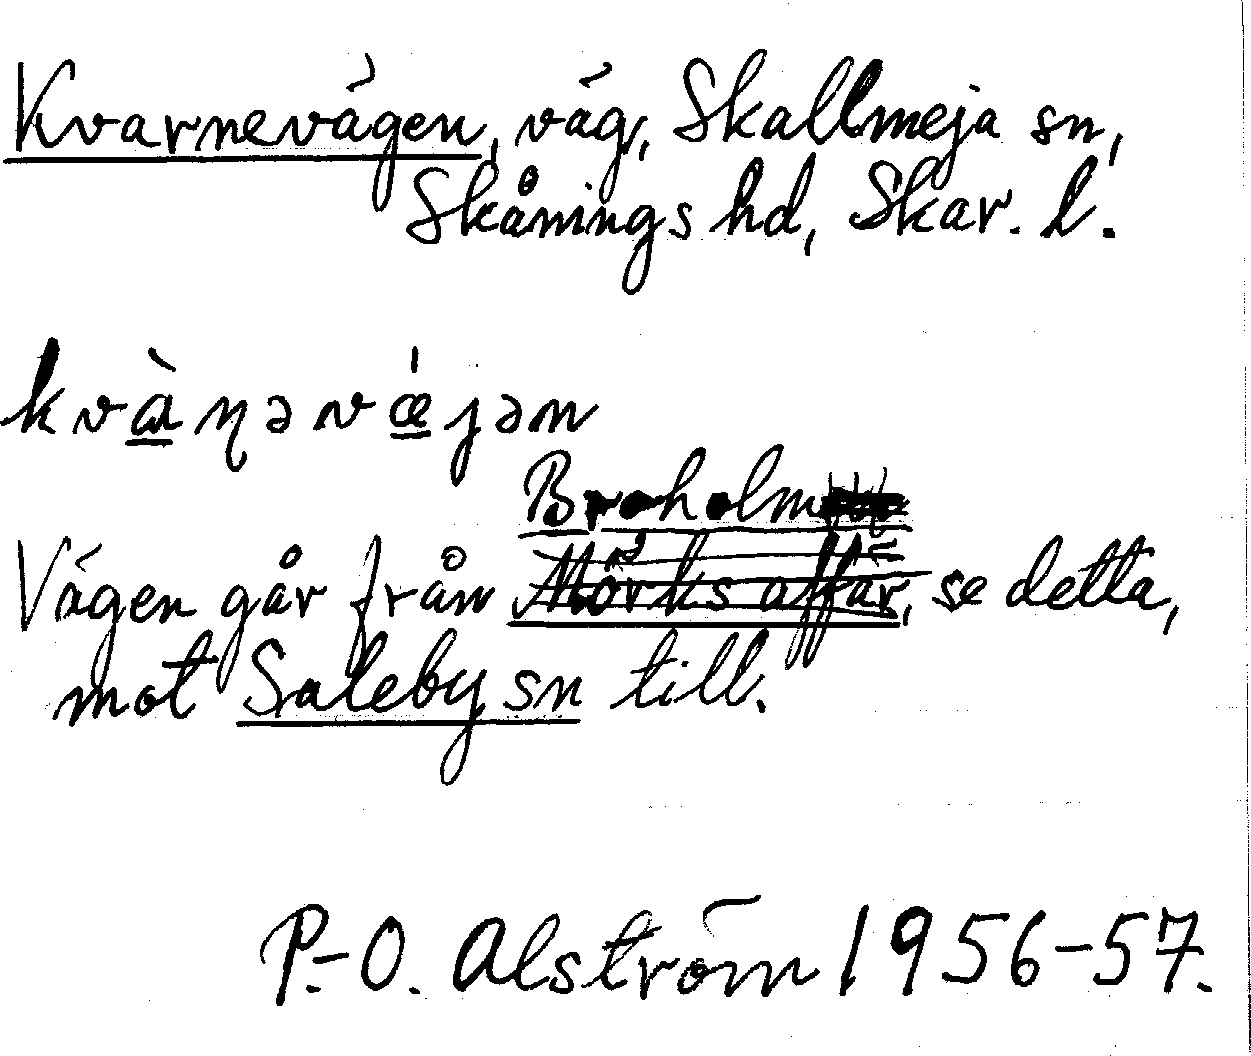 Kvarnevägen, väg, Skallmeja sn,
Skånings hd, Skar. l.
kvànəvǽjən
Broholm
Vägen går från Mörks affär, se detta,
mot Saleby sn till.
P.-O. Alström 1956-57.